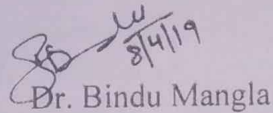 8/4/19
Dr. Bindu Mangla